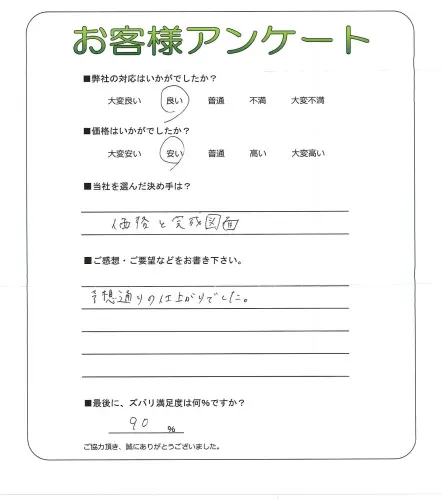 お客様アンケート
■弊社の対応はいかがでしたか?
大変良い 良い 普通 不満 大変不満
■価格はいかがでしたか?
大変安い 安い 普通 高い 大変高い
■当社を選んだ決め手は?
価格と完成図面
■ご感想・ご要望などをお書き下さい。
予想通りの仕上がりでした。
■最後に、ズバリ満足度は何%ですか?
90 %
ご協力頂き、誠にありがとうございました。